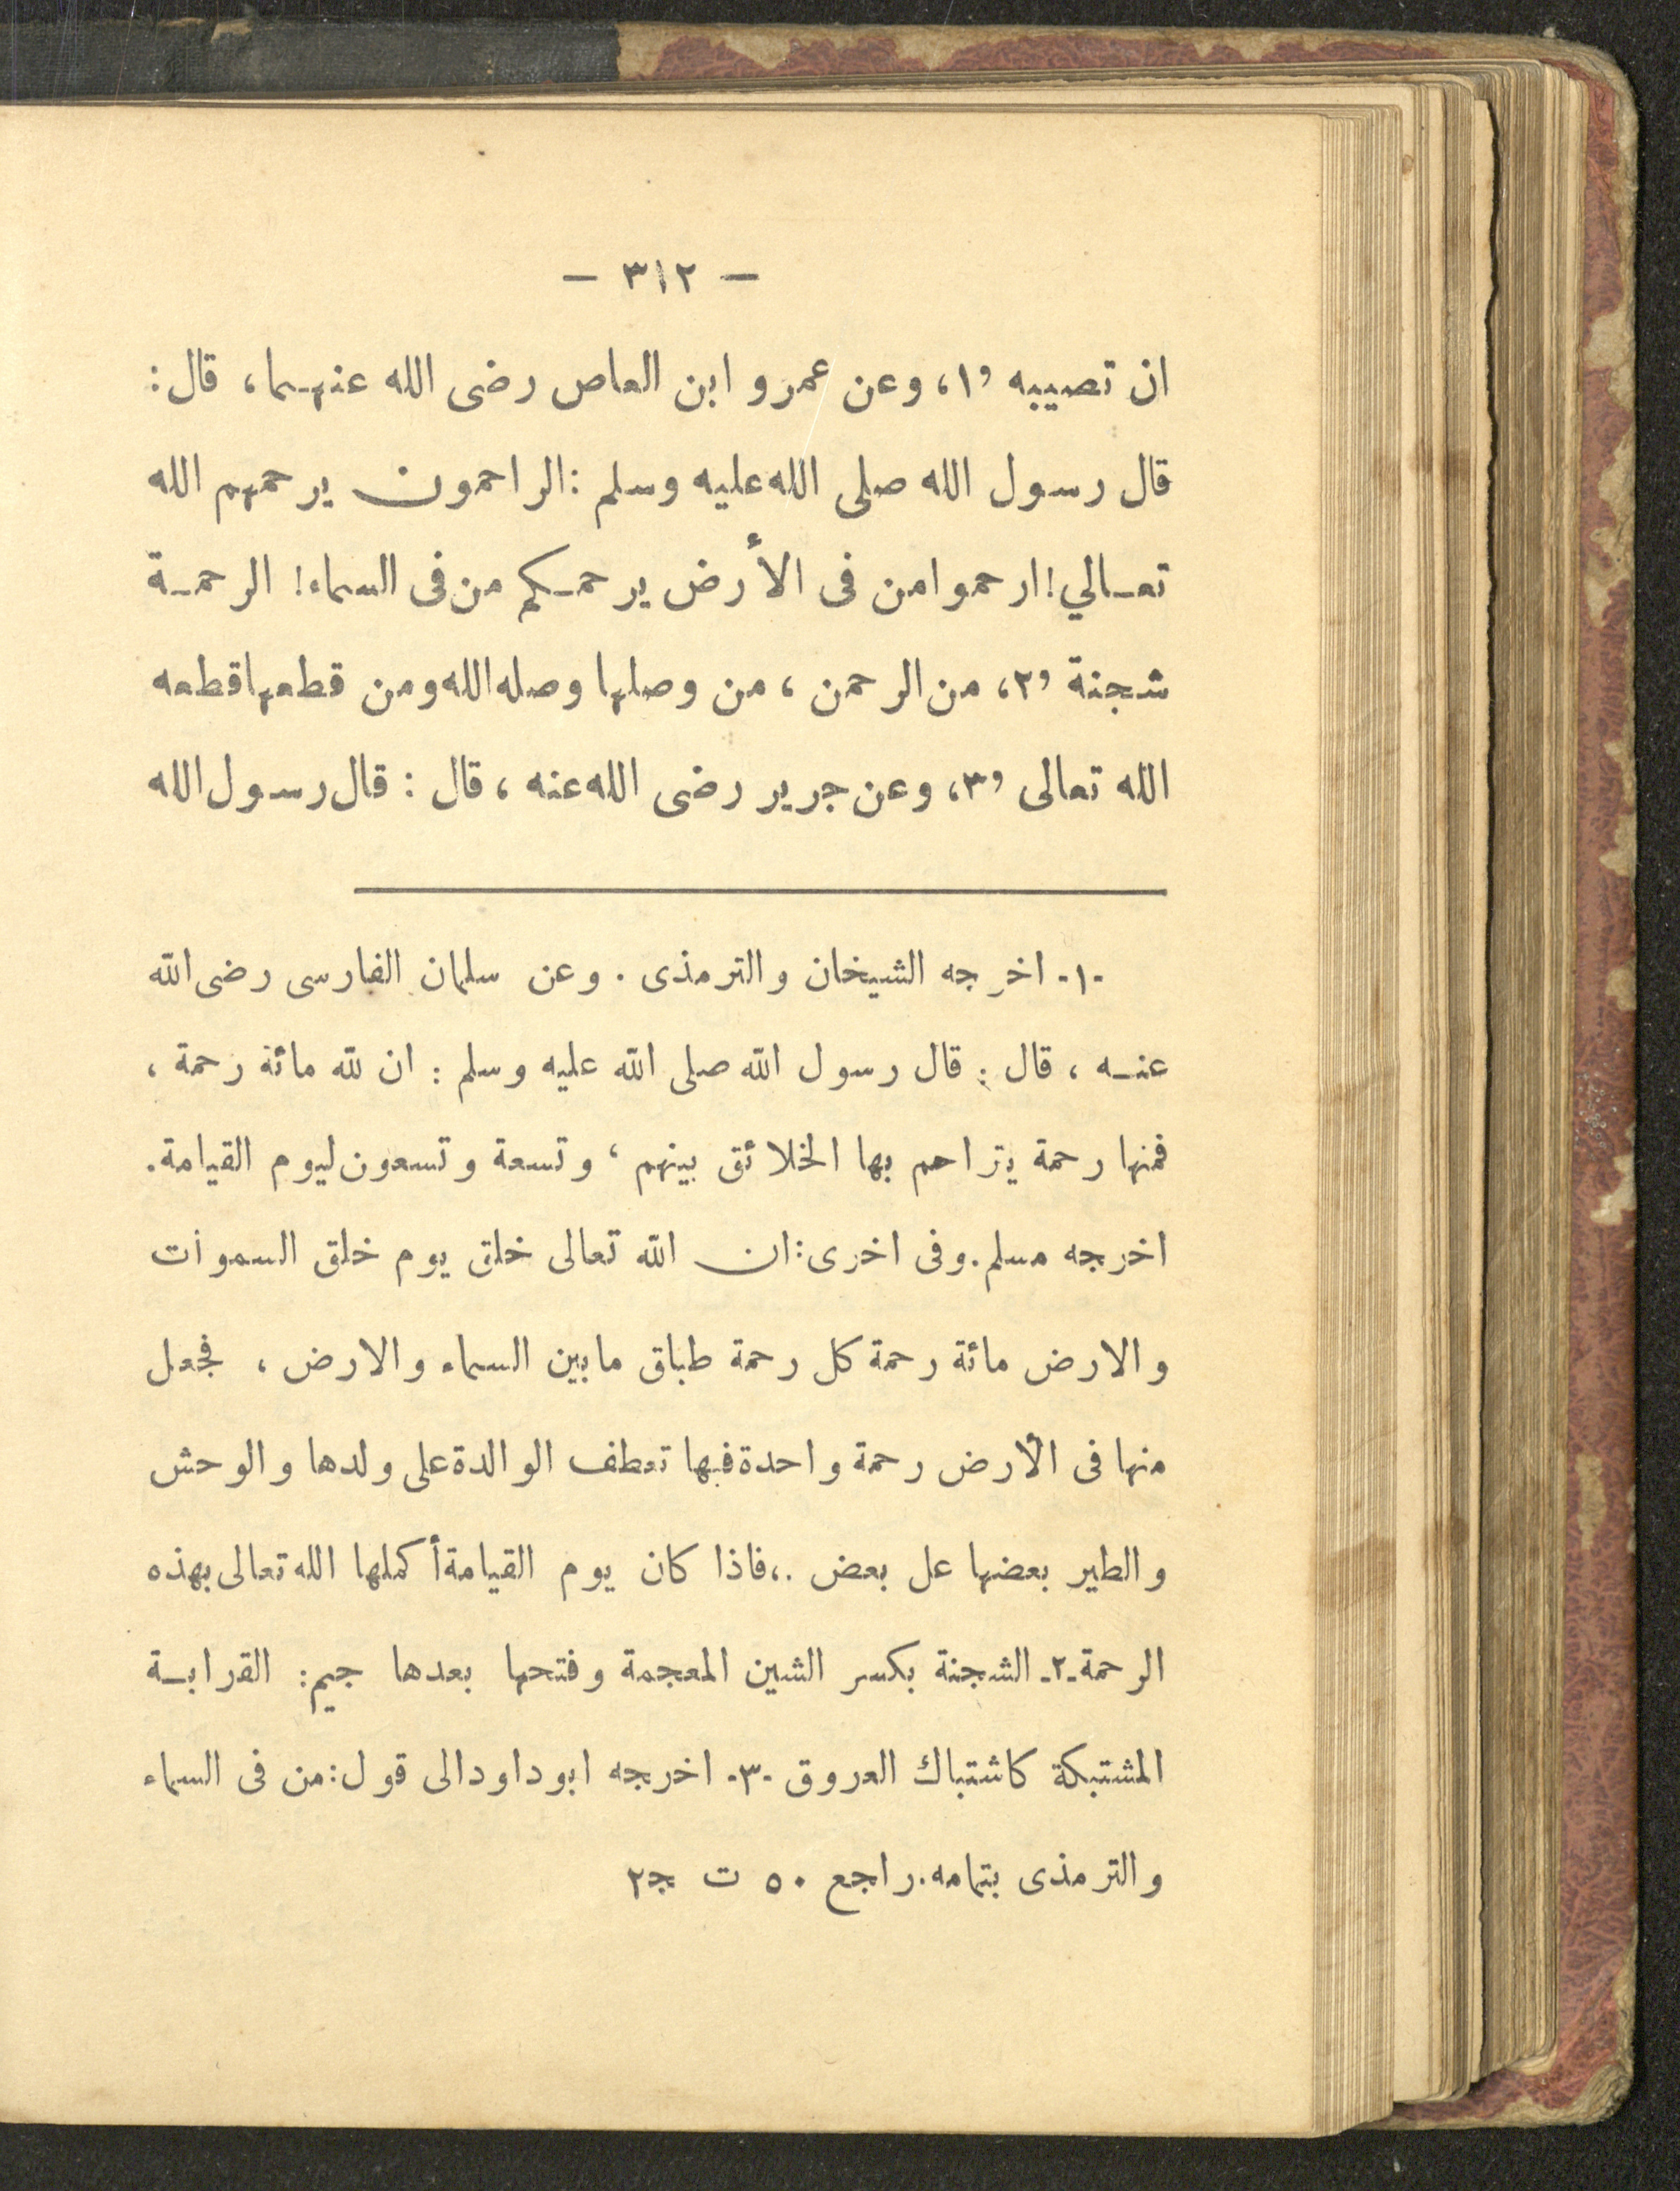 — ٣١٢ —
ان تصيبه «١» وعن عمرو ابن العاص رضى الله عنهما، قال:
قال رسول الله صلى الله عليه وسلم: الراحمون يرحمهم الله
تعالي! ارحموا من فى الأرض يرحمكم من فى السماء! الرحمة
شجنة «٢» من الرحمن، من وصلها وصله الله ومن قطعها قطعه
الله تعالى «٣» وعن جرير رضى الله عنه، قال: قال رسول الله
-١- اخرجه الشيخان والترمذى. وعن سلمان الفارسى رضى الله
عنه، قال: قال رسول الله صلى الله عليه وسلم: ان لله مائة رحمة،
فمنها رحمة يتراحم بها الخلائق بينهم، وتسعة وتسعون ليوم القيامة.
اخرجه مسلم. وفى اخرى: ان الله تعالى خلق يوم خلق السموات
والارض مائة رحمة كل رحمة طباق مابين السماء والارض، فجعل
منها فى الأرض رحمة واحدة فبها تعطف الوالدة على ولدها والوحش
والطير بعضها عل بعض .، فاذا كان يوم القيامة أكملها الله تعالى بهذه
الرحمة -٢- الشجنة بكسر الشين المعجمة وفتحها بعدها جيم: القرابة
المشتبكة كاشتباك العروق -٣- اخرجه ابو داود الى قول: من فى السماء
والترمذى بتمامه. راجع ٥٠ ت ج٢